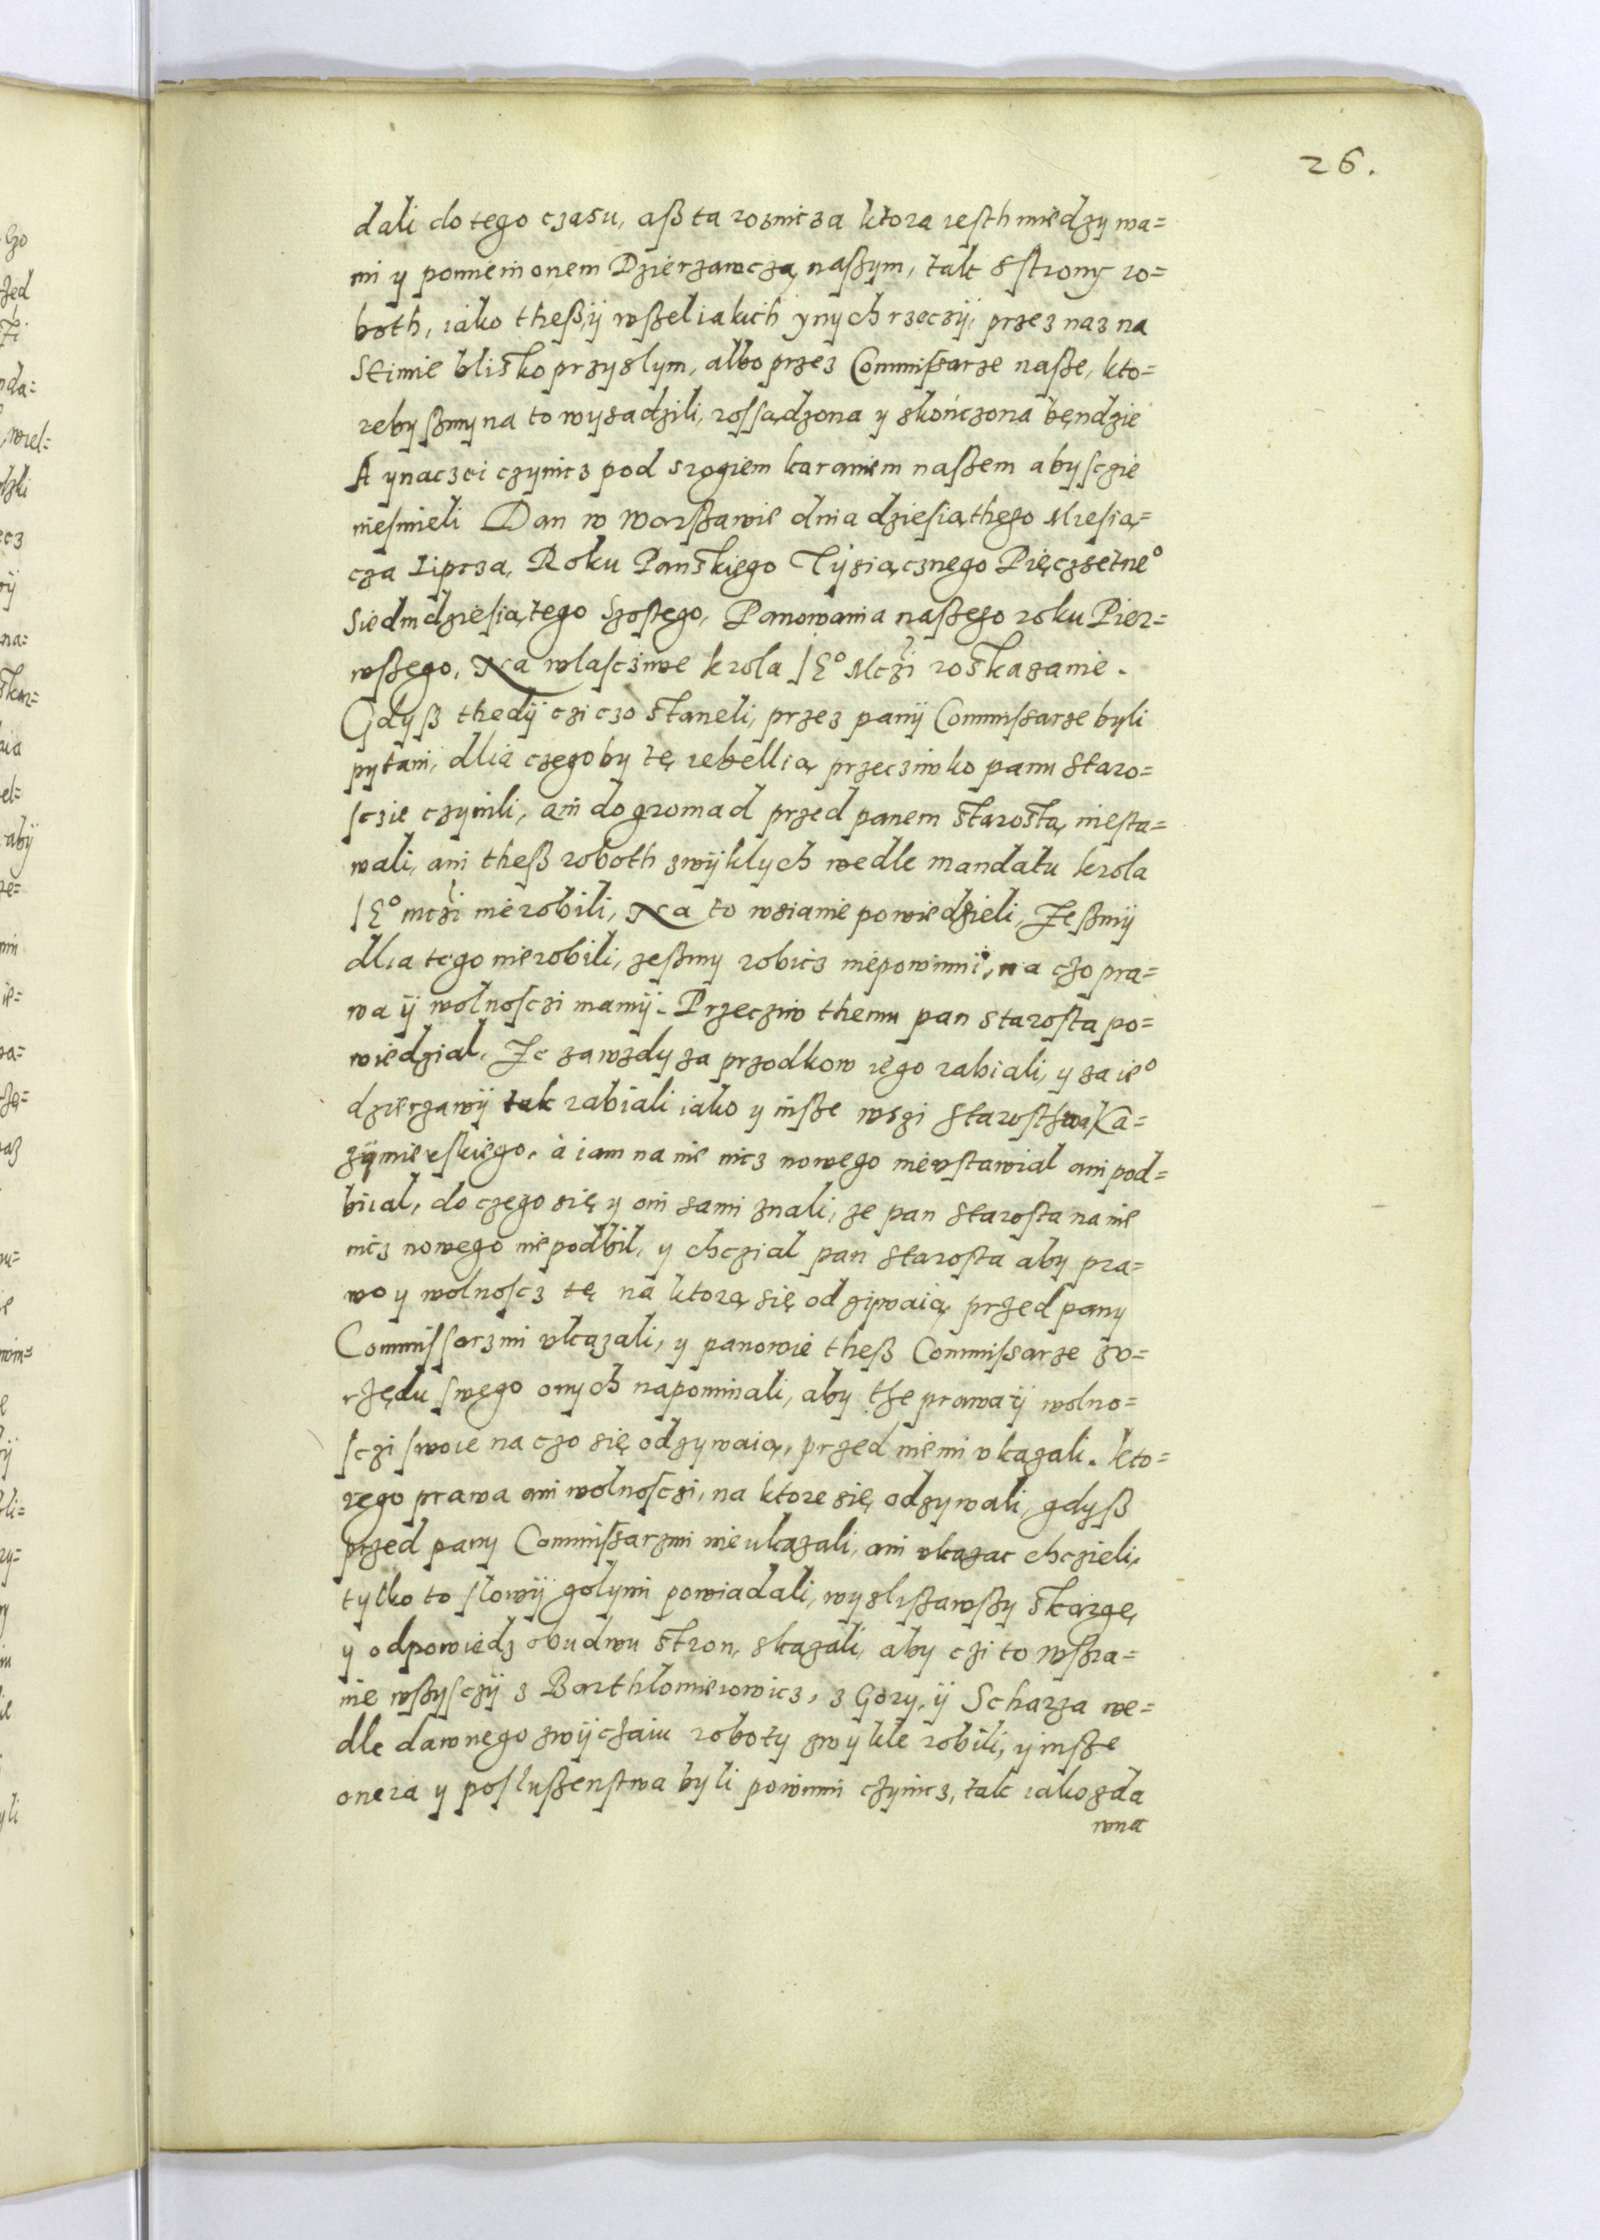 26.
dali do tego czasu, aß ta roznicza ktora iesth miedzy wa=
mi y pomienionem Dzierzawczą naßym, tak s strony ro=
both, iako theß ÿ wßeliakich ynych rzeczÿ, przez naz na
Seimie blisko przyslym, albo przez Commißarze naße, kto=
rebysmy na to wysadzili, rossądzona y skończona bęndzie
A ynaczei czynicz pod srogiem karaniem naßem abysczie
niesmieli Dan w Warßawie dnia dziesiąthego Miesią=
cza Lipcza, Roku Panskiego Tysiącznego Pięczsetne°
Siedmdziesiątego Szostego, Panowania naßego roku Pier=
wßego, Na wlascziwe krola JE° Mczi roskazanie.
Gdyß thedÿ czi czo staneli, przez panÿ Commissarze byli
pytani, dlia czegoby tę rebellią przecziwko panu Staro=
sczie czynili, ani do gromad przed panem starostą niesta=
wali, ani theß roboth zwÿklych wedle mandatu krola
JE° mczi nierobili, Na to wsianie powiedzieli, Zeßmÿ
dlia tego nierobili, zeßmy robicz niepowinni, na czo pra=
wa ÿ wolnosczi mamÿ. Przecziw themu pan starosta po=
wiedzial, Ze zawzdy za przodkow iego rabiali, y za ie°
dzierzawÿ tak rabiali iako y insze wszi Starosthwa Ka=
zÿmierskiego, à iam na nie nicz nowego nieustawial ani pod=
biial, do czego się y oni sami znali, ze pan starosta na nie
nicz nowego niepodbil, y chczial pan starosta aby pra=
wo y wolnoscz tę na ktorą się odziwaią, przed pany
Commissarzmi ukazali, y panowie theß Commissarze zu=
rzędu swego onych napominali, aby the prawa ÿ wolno=
sczi swoie na czo się odzywaią, przed niemi ukazali. kto=
rego prawa ani wolnosczi, na ktore się odzywali, gdyß
przed pany Commißarzmi nie ukazali, ani ukazac chczieli,
tylko to slowÿ golymi powiadali, wyslißawßy skargę,
y odpowiedz obudwu stron, skazali, aby czi to wßia=
nie wßysczÿ z Barthlomieiowicz, z Gory, ÿ Scharza we=
dle dawnego zwÿczaiu roboty zwykle robili, y insze
onera y poslußenstwa byli powinni czynicz, tak iako zda
wna